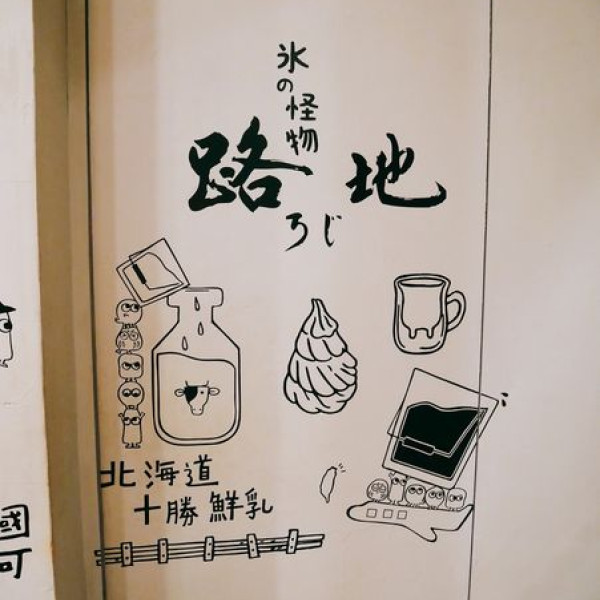 氷の怪物
路地
ろじ
北海道
十勝 鮮乳
國
可